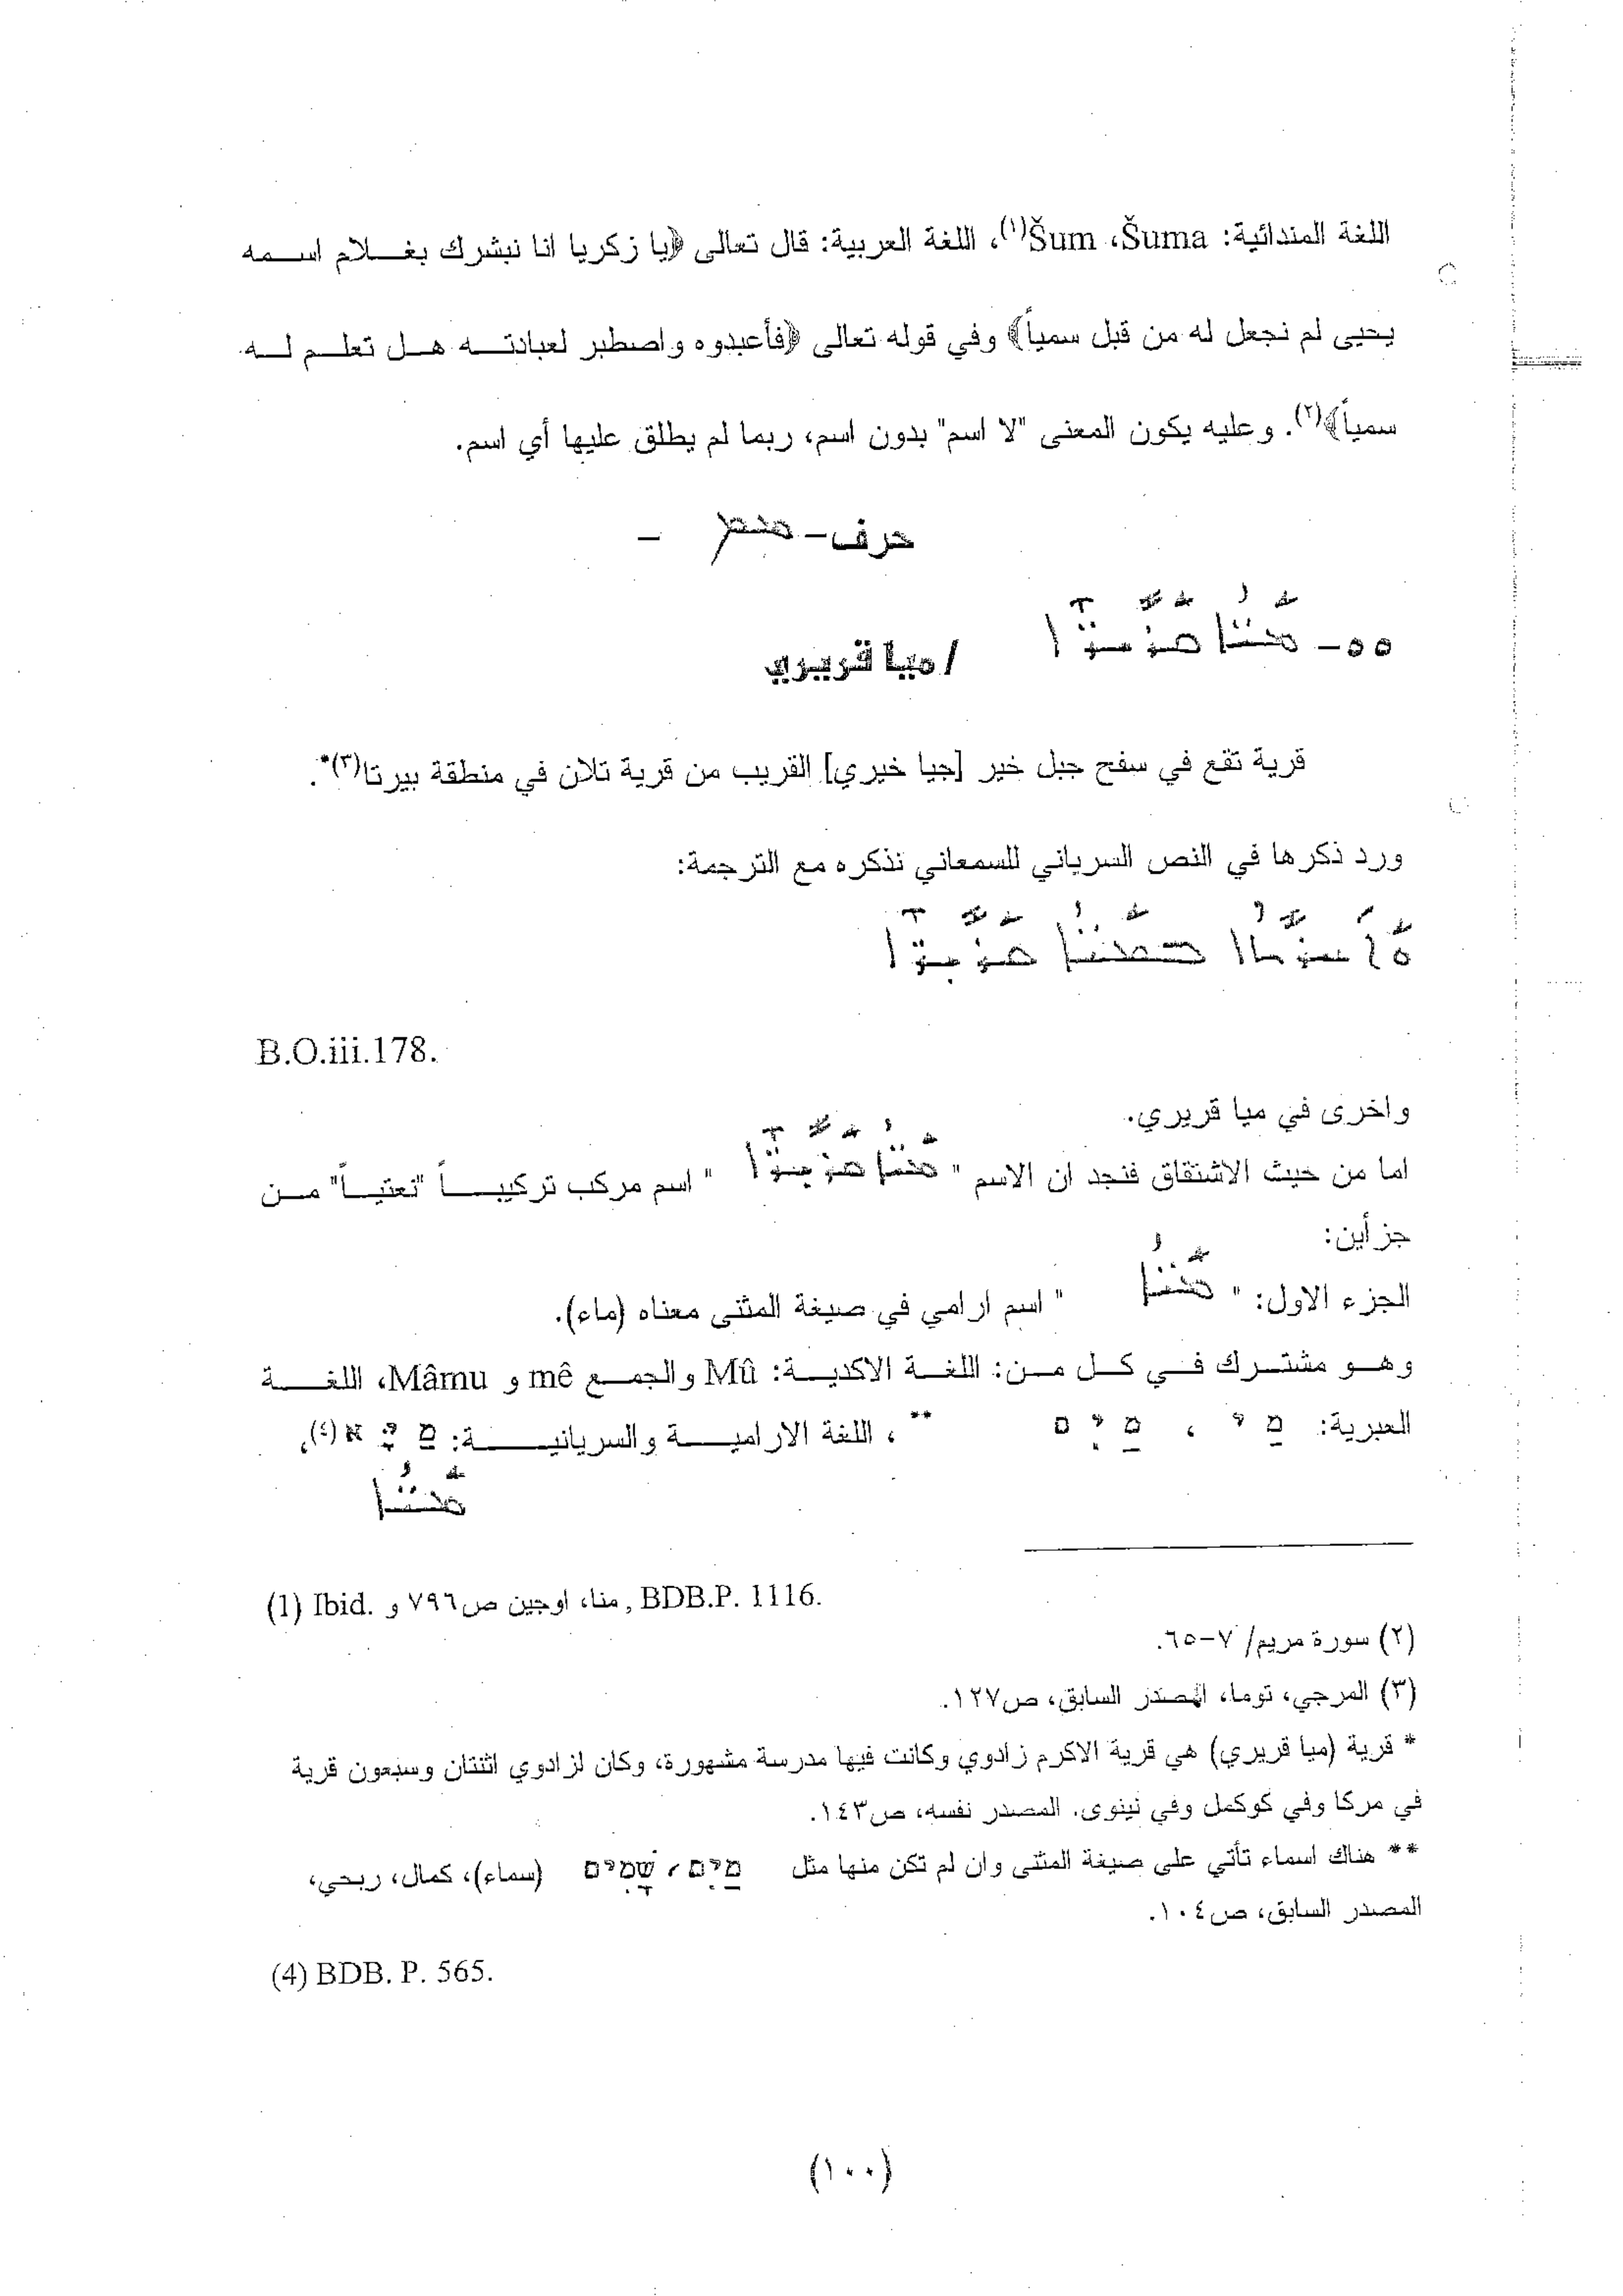 اللغة المندائية: Šum ،Šuma⁽¹⁾، اللغة العربية: قال تعالى ﴿يا زكريا انا نبشرك بغلام اسمه
يحيى لم نجعل له من قبل سمياً﴾ وفي قوله تعالى ﴿فأعبدوه واصطبر لعبادته هل تعلم له
سمياً﴾⁽٢⁾. وعليه يكون المعنى "لا اسم" بدون اسم، ربما لم يطلق عليها أي اسم.
حرف- ܡܝܡ -
٥٥- ܡܝܐ ܩܪܝܪܐ / ميا قريري
قرية تقع في سفح جبل خير [جيا خيري] القريب من قرية تلان في منطقة بيرتا⁽٣⁾*.
ورد ذكرها في النص السرياني للسمعاني نذكره مع الترجمة:
ܩܪܝܪܐ
B.O.iii.178.
واخرى في ميا قريري.
اما من حيث الاشتقاق فنجد ان الاسم " ܡܝܐ ܩܪܝܪܐ " اسم مركب تركيباً "نعتياً" من
جزأين:
الجزء الاول: " ܡܝܐ " اسم ارامي في صيغة المثنى معناه (ماء).
وهو مشترك في كل من: اللغة الاكدية: Mû والجمع mê و Mâmu، اللغة
العبرية: מַי ، מַיִם ** ، اللغة الارامية والسريانية: מַיָּא⁽٤⁾،
ܡܝܐ
(1) Ibid. منا، اوجين ص٧٩٦ و , BDB.P. 1116.
(٢) سورة مريم/ ٧-٦٥.
(٣) المرجي، توما، المصدر السابق، ص١٢٧.
* قرية (ميا قريري) هي قرية الاكرم زادوي وكانت فيها مدرسة مشهورة، وكان لزادوي اثنتان وسبعون قرية
في مركا وفي كوكمل وفي نينوى. المصدر نفسه، ص١٤٣.
** هناك اسماء تأتي على صيغة المثنى وان لم تكن منها مثل מַיִם , שָׁמַיִם (سماء)، كمال، ربحي،
المصدر السابق، ص١٠٤.
(4) BDB. P. 565.
(١٠٠)